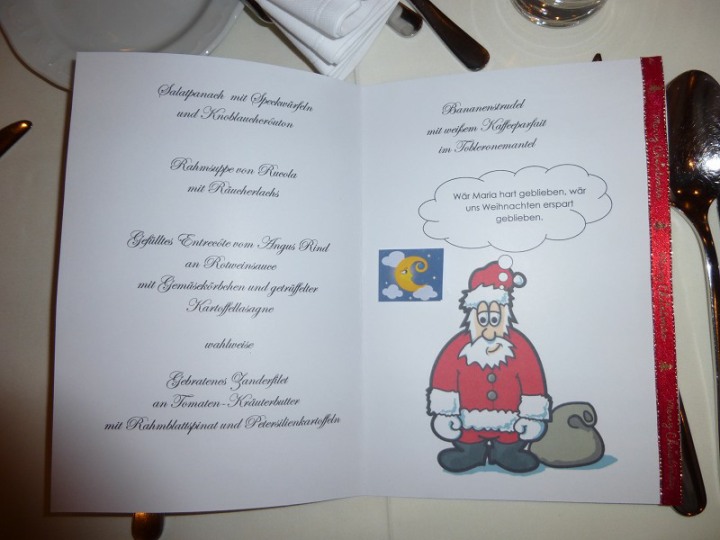 Salatpanach mit Speckwürfeln
und Knoblauchcroûton
Rahmsuppe von Rucola
mit Räucherlachs
Gefülltes Entrecôte vom Angus Rind
an Rotweinsauce
mit Gemüsekörbchen und getrüffelter
Kartoffellasagne
wahlweise
Gebratenes Zanderfilet
an Tomaten-Kräuterbutter
mit Rahmblattspinat und Petersilienkartoffeln
Bananenstrudel
mit weißem Kaffeeparfait
im Tobleronemantel
Wär Maria hart geblieben, wär
uns Weihnachten erspart
geblieben.
Merry Christmas